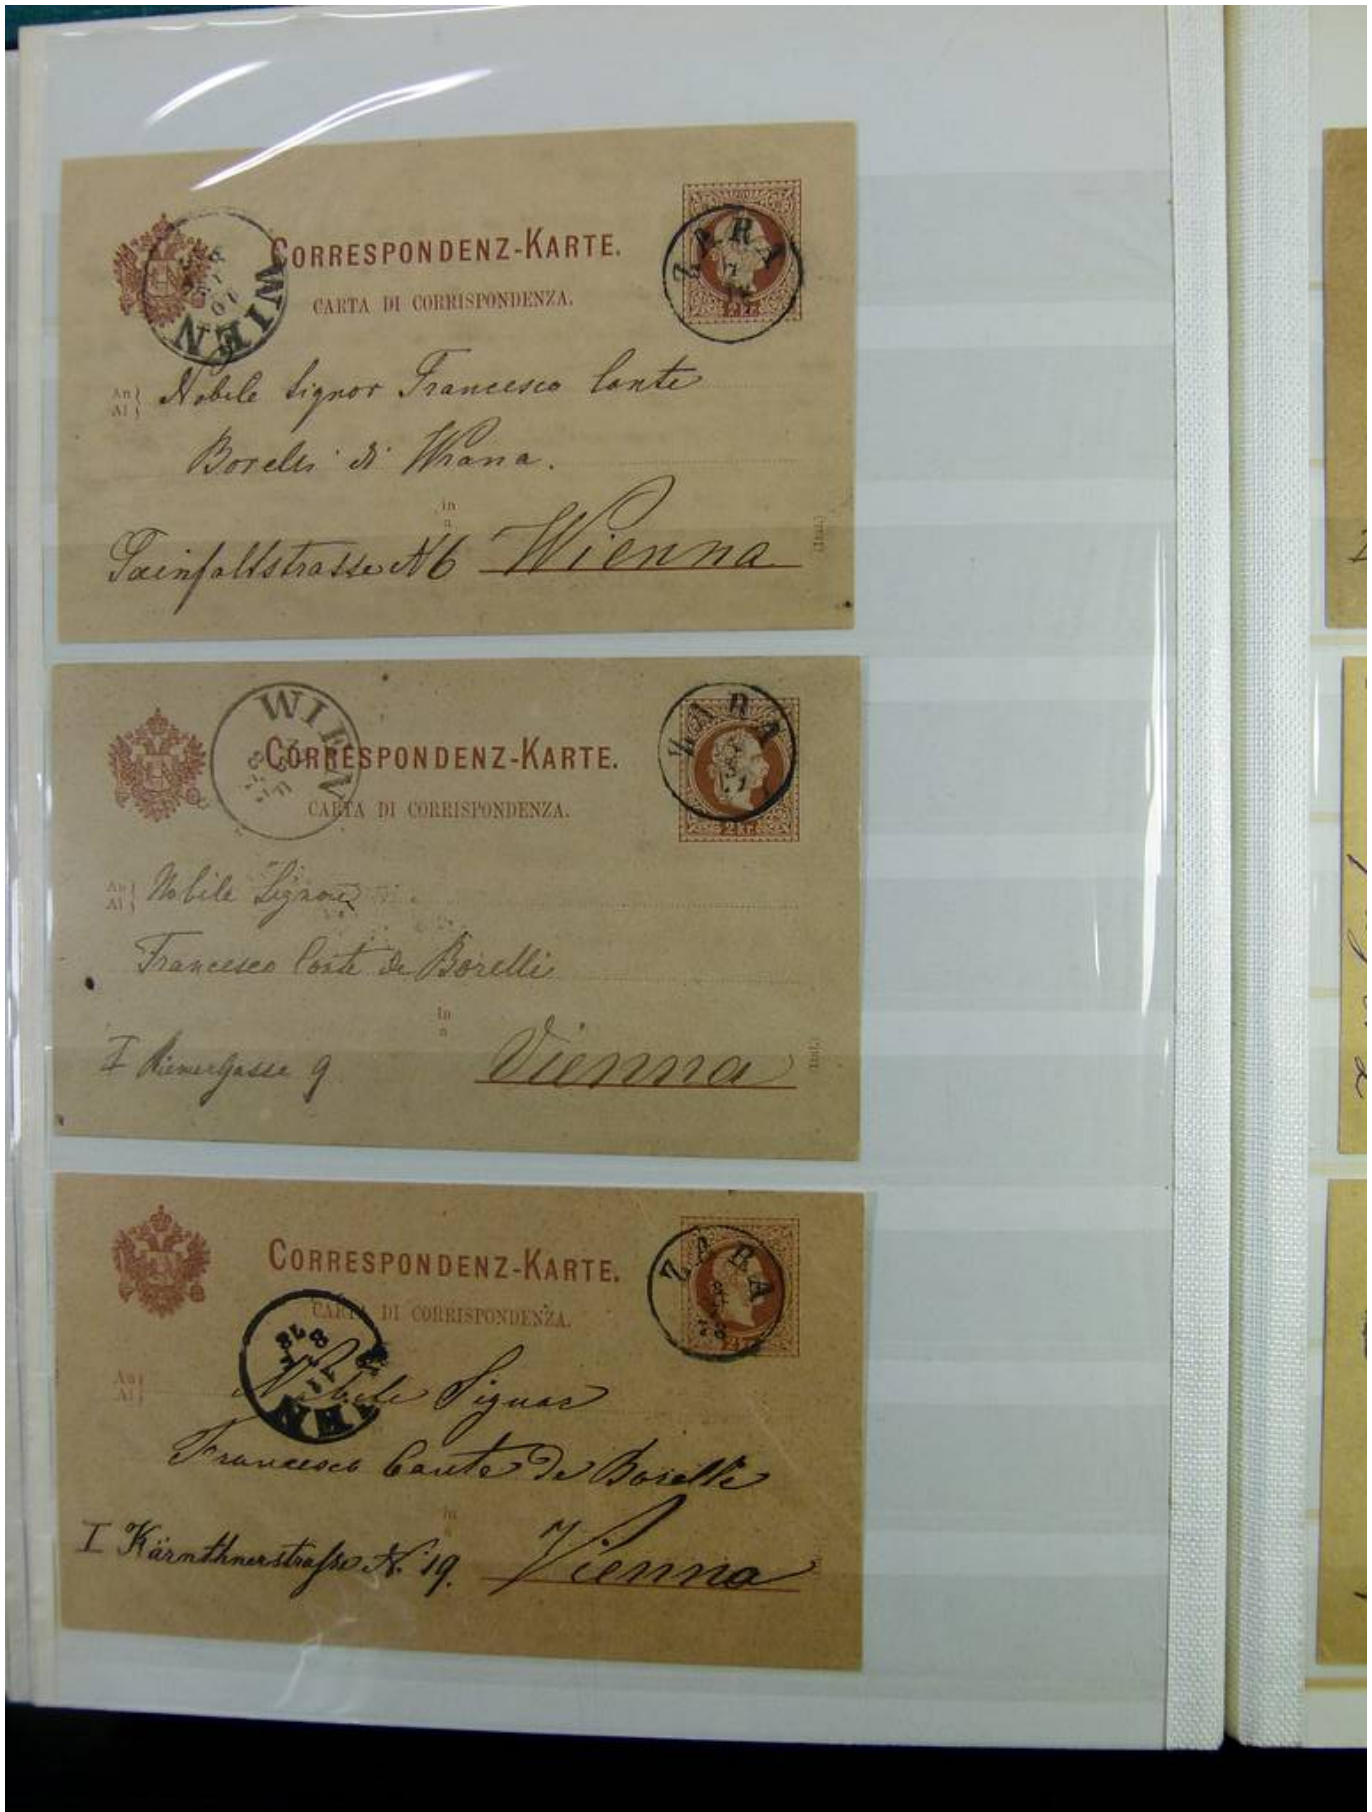 CORRESPONDENZ-KARTE.
CARTA DI CORRISPONDENZA.
WIEN
ZARA
2 Kr.
An
Al
Nobile Signor Francesco Conte
Borelli di Wrana.
in
a
Wienna
(Ital.)
CORRESPONDENZ-KARTE.
CARTA DI CORRISPONDENZA.
WIEN
ZARA
2 Kr.
An
Al
Nobile Signore
Francesco Conte de Borelli
in
a
I Riemergasse 9 Vienna
(Ital.)
CORRESPONDENZ-KARTE.
CARTA DI CORRISPONDENZA.
ZARA
An
Al
Nobile Signor
Francesco Conte De Borelli
in
a
I Kärnthnerstraße N. 19. Vienna